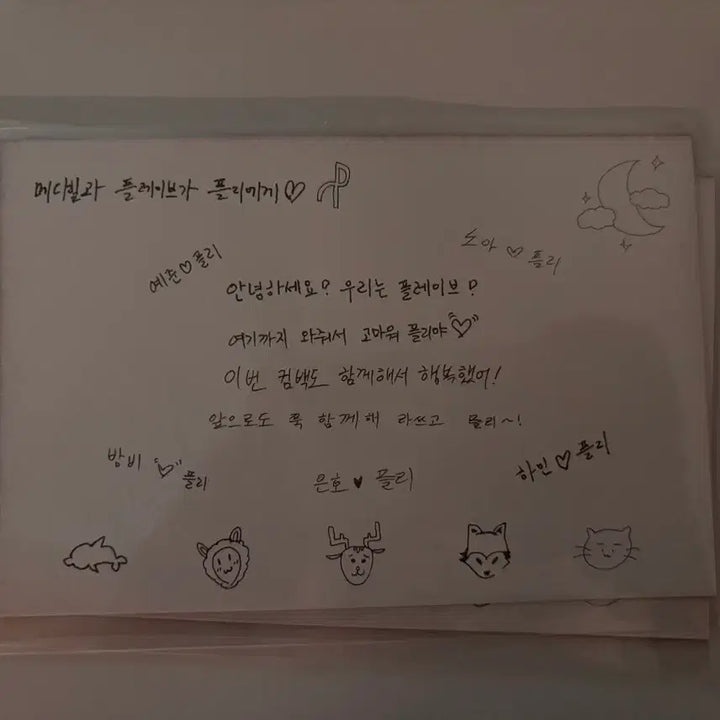 메디힐과 플레이브가 플리에게♡
예준♡플리
노아♡플리
안녕하세요? 우리는 플레이브?
여기까지 와줘서 고마워 플리야"♡"
이번 컴백도 함께해서 행복했어!
앞으로도 쭉 함께해 라쓰고 플리~!
밤비"♡"플리
은호♥플리
하민♡플리